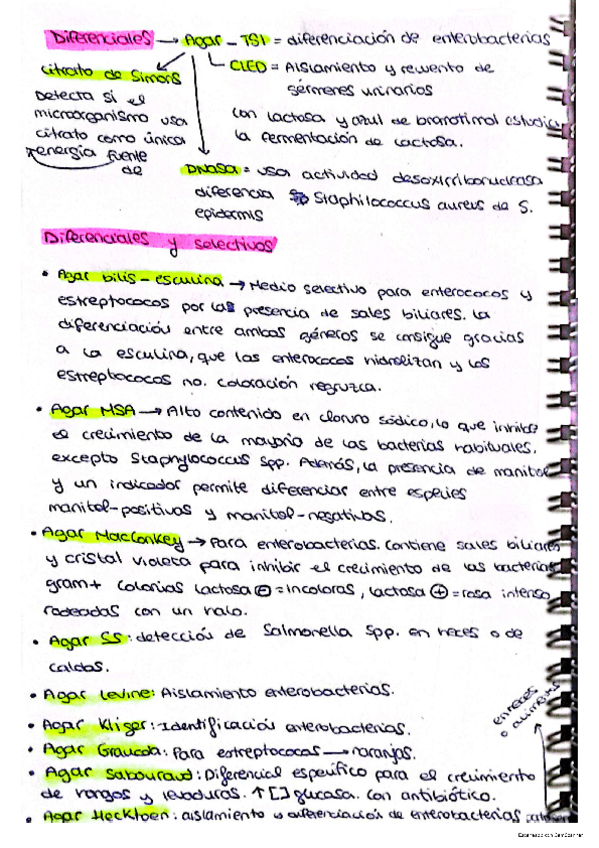 Diferenciales → Agar - TSI = diferenciación de enterobacterias
CLED = Aislamiento y recuento de
gérmenes urinarios
con lactosa y azul de bromotimol estudia
la fermentación de lactosa.
Citrato de Simons
Detecta si el
microorganismo usa
citrato como única
energía fuente
de
DNAsa = usa actividad desoxirribonucleasa
diferencia Staphilococcus aureus de S.
epidermis
Diferenciales y selectivos
• Agar bilis - esculina → Medio selectivo para enterococos y
estreptococos por las presencia de sales biliares. La
diferenciación entre ambos géneros se consigue gracias
a la esculina, que los enterococos hidrolizan y los
estreptococos no. coloración negruzca.
• Agar MSA → Alto contenido en cloruro sódico, lo que inhibe
el crecimiento de la mayoría de las bacterias habituales.
excepto Staphylococcus spp. Además, la presencia de manitol
y un indicador permite diferenciar entre especies
manitol-positivas y manitol-negativas.
• Agar MacConkey → Para enterobacterias. Contiene sales biliares
y cristal violeta para inhibir el crecimiento de las bacterias
gram+ colonias lactosa ⊖ = incoloras, lactosa ⊕ = rosa intenso,
rodeadas con un halo.
• Agar SS: detección de Salmonella spp. en heces o de
caldos.
• Agar Levine: Aislamiento enterobacterias.
• Agar Kliger: Identificación enterobacterias.
• Agar Granada: Para estreptococos → naranjas.
• Agar Sabouraud: Diferencial específico para el crecimiento
de hongos y levaduras. ↑ [ ] glucosa. Con antibiótico.
• Agar Hecktoen: aislamiento y diferenciación de enterobacterias
en heces
o alimentos
Escaneado con CamScanner